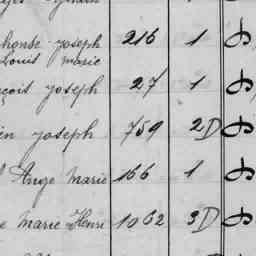 phonse Joseph 216 1
Louis Marie
çois Joseph 27 1
en Joseph 759 2D
Ange Marie 166 1
e Marie Henri 1062 3D